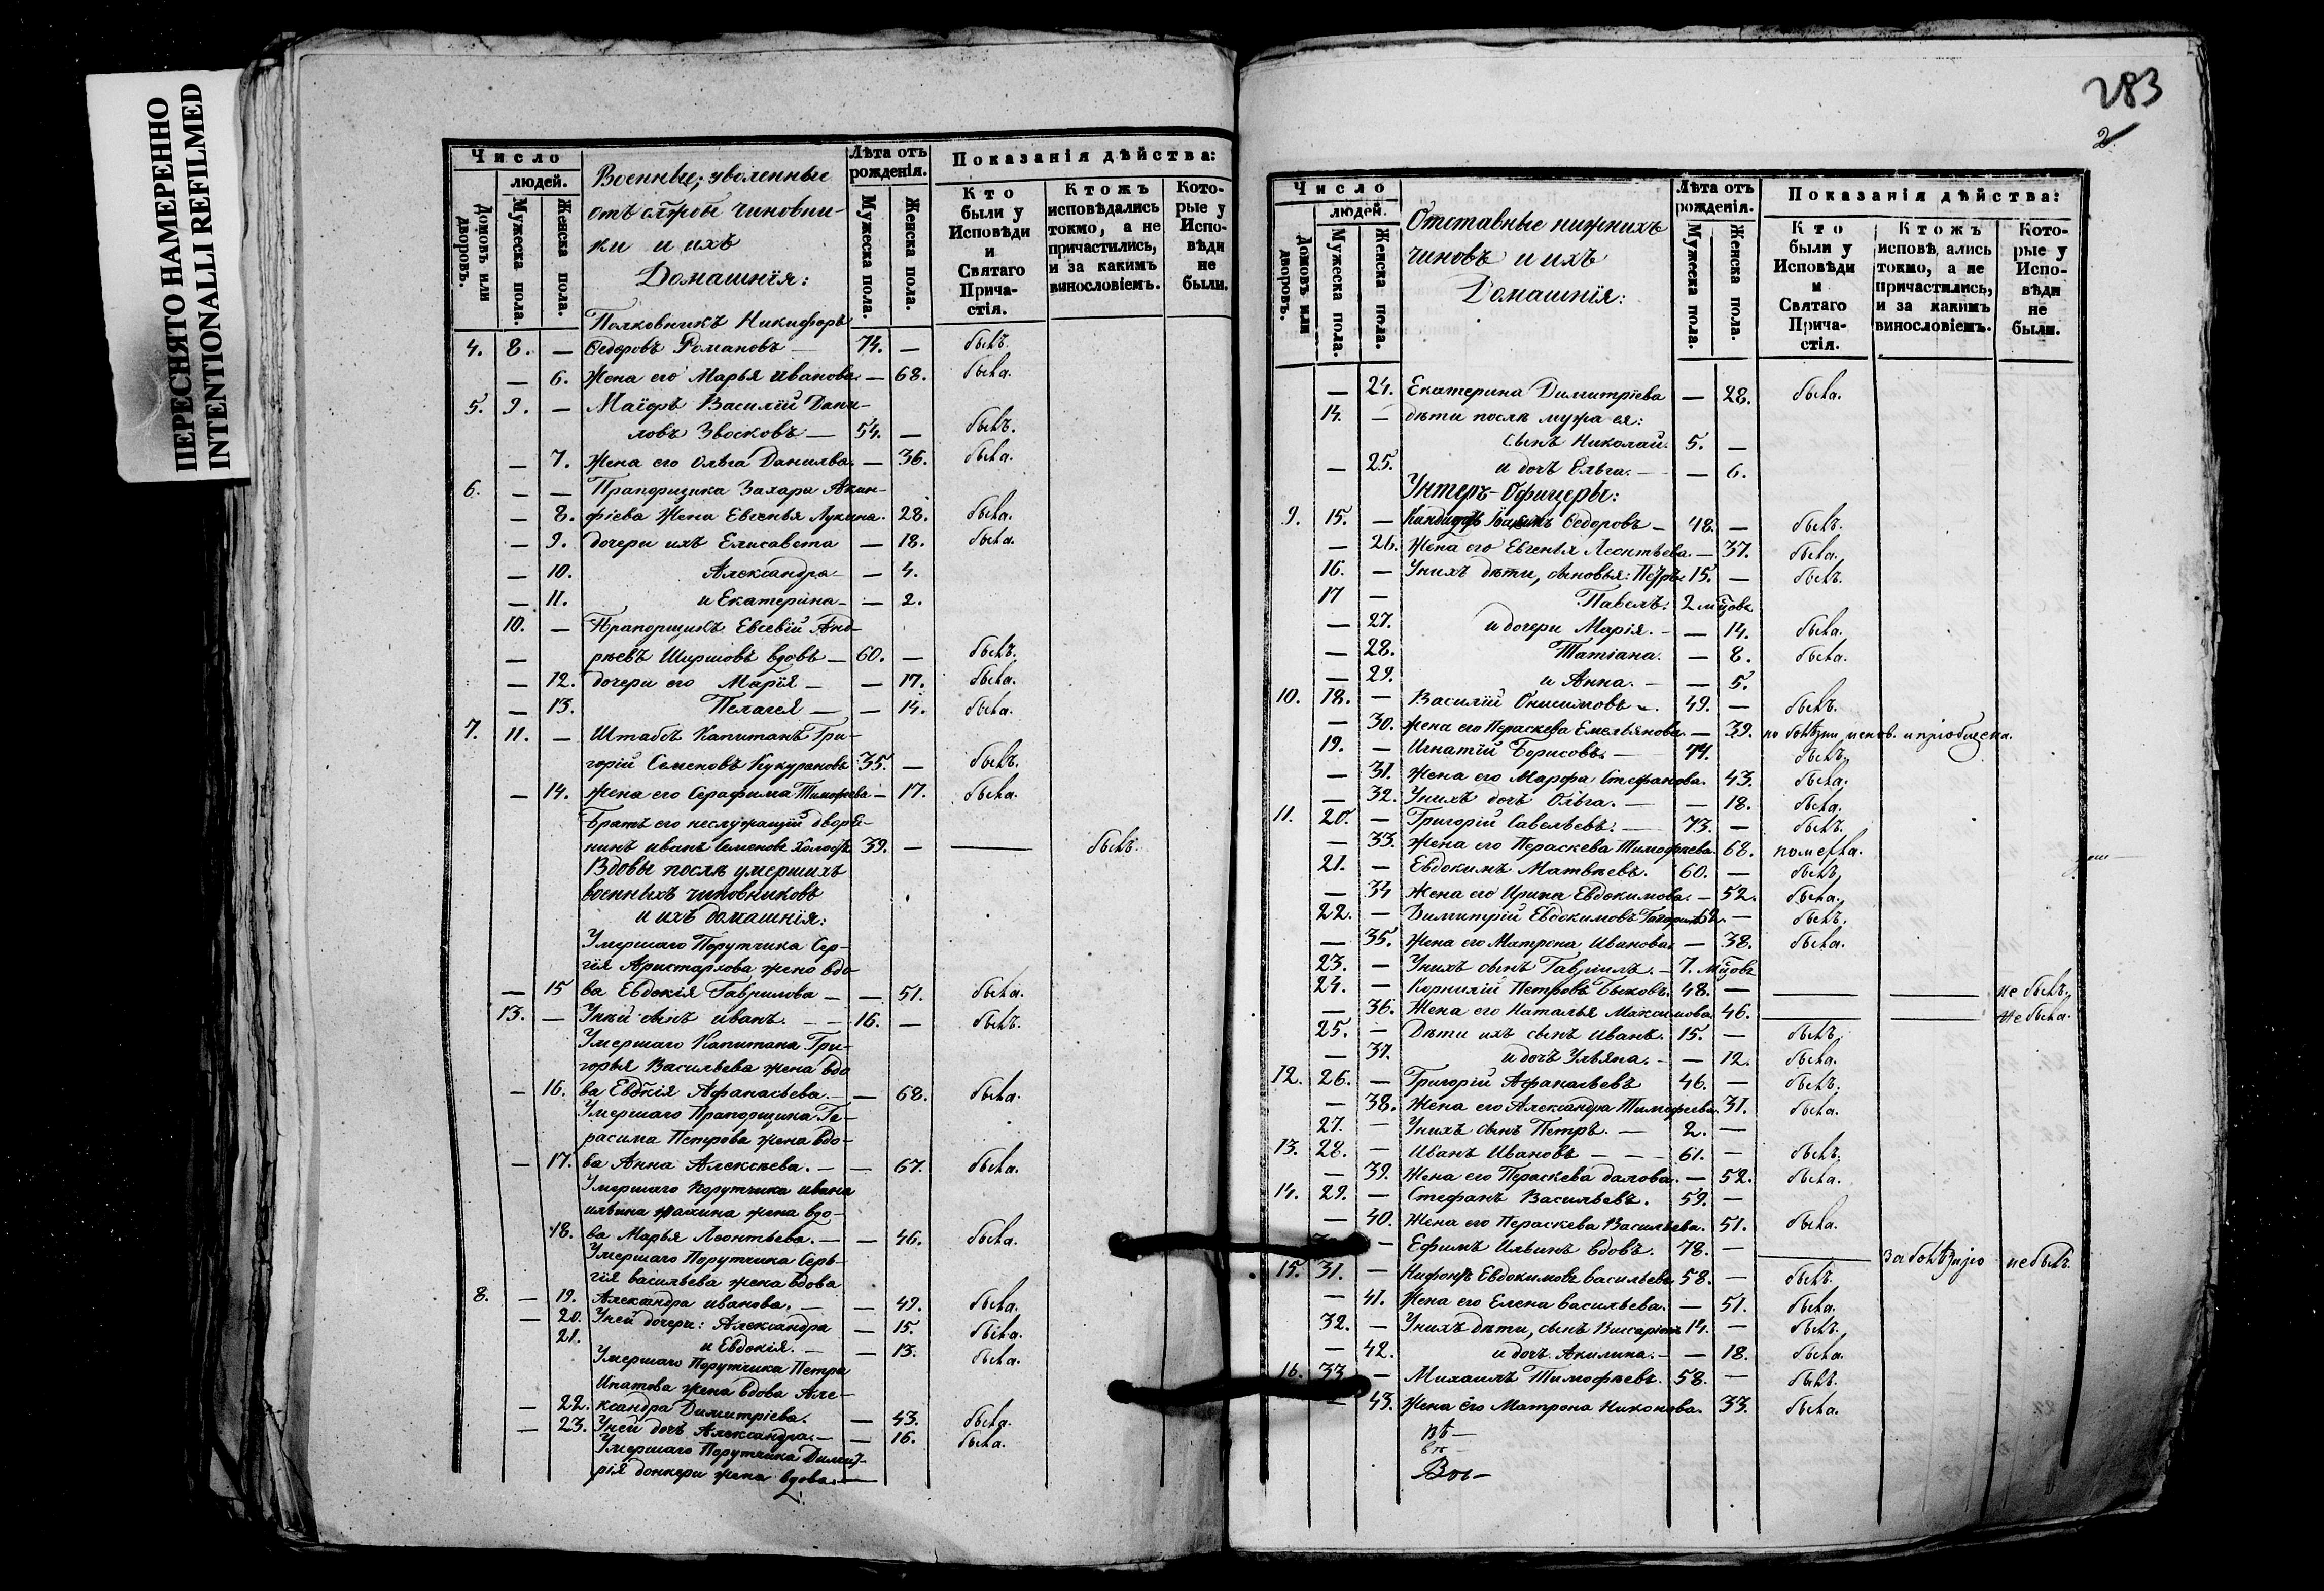 ПЕРЕСНЯТО НАМЕРЕННО
INTENTIONALLI REFILMED
Число
людей.
Домовъ или дворовъ.
Мужеска пола.
Женска пола.
Военные, уволенные
отъ службы чиновни-
ки и ихъ
Домашнія:
Лѣта отъ рожденія.
Мужеска пола.
Женска пола.
Показанія дѣйства:
Кто были у Исповѣди и Святаго Прича-стія.
Ктожъ исповѣдались токмо, а не причастились, и за какимъ винословіемъ.
Кото-рые у Испо-вѣди не были.
Полковникъ Никифоръ
4. 8. — Ѳедоровъ Романовъ — 74. — былъ.
— 6. Жена его Марья Иванова. — 68. была.
5. 9. — Маіоръ Василій Дани-
ловъ Звосковъ — 54. — былъ.
— 7. Жена его Ольга Данилва. — 36. была.
6. — — Прапорщика Захара Акин-
— 8. фіева Жена Евгенья Лукина. 28. была.
— 9. дочери ихъ Елисавета — 18. была.
— 10. Александра — — 4.
— 11. и Екатерина — — 2.
10. — Прапорщикъ Евсевій Анд-
— рѣевъ Ширшовъ вдовъ — 60. — былъ.
— 12. дочери его Марія — — 17. была.
— 13. Пелагея — — 14. была.
7. 11. — Штабсъ Капитанъ Гри-
горій Семеновъ Кукурановъ 35. — былъ.
— 14. жена его Серафима Тимофеева — 17. была.
Братъ его неслужащій дворя-
нинъ иванъ Семеновъ холостъ 39. — — былъ.
Вдовы послѣ умершихъ
военныхъ чиновниковъ
и ихъ домашнія:
Умершаго Порутчика Сер-
гія Аристархова жена вдо-
— 15 ва Евдокія Гаврилова — — 51. была.
13. — У нѣй сынъ иванъ. — — 16. — былъ.
Умершаго Капитана Гри-
горья Васильева жена вдо
— 16. ва Евдокія Афанасьева. — — 68. была.
Умершаго Прапорщика Ге-
расима Петрова жена вдо-
— 17. ва Анна Алексѣева. — — 67. была.
Умершаго Порутчика ивана
ильина жена вдо-
18. ва Марья Леонтьева. — — 46. была.
Умершаго Порутчика Серь-
гія васильева жена вдова
8. — 19. Александра иванова. — — 49. была.
— 20. У ней дочери: Александра — 15. была.
21. и Евдокія. — — 13. была.
Умершаго Порутчика Петра
Ипатова жена вдова Але-
— 22. ксандра Димитріева. — 43. была.
— 23. У ней дочь Александра. — — 16. была.
Умершаго Порутчика Димит-
рія донкери жена вдова. —
283
2
Число
людей.
Домовъ или дворовъ.
Мужеска пола.
Женска пола.
Отставные нижнихъ
чиновъ и ихъ
Домашнія:
Лѣта отъ рожденія.
Мужеска пола.
Женска пола.
Показанія дѣйства:
Кто были у Исповѣди и Святаго Прича-стія.
Ктожъ исповѣ ались токмо, а не причастились, и за какимъ винословіемъ.
Кото-рые у Испо-вѣди не были.
— 24. Екатерина Димитріева — 28. была.
14. — дѣти послѣ мужа ея:
сынъ Николай. 5. —
— 25. и дочь Ольга. — — 6.
Унтеръ-Офицеры:
9. 15. — Ѳедоровъ — 48. — былъ.
— 26. Жена его Евгенья Леонтьева. — 37. была.
16. — У нихъ дѣти, сыновья: Петръ 15. — былъ.
17 — Павелъ. 2 мѣсцовъ
— 27. и дочери Марія. — — 14. была.
— 28. Татіана. — 8. была.
— 29. и Анна. — — 5.
10. 18. — Василій Онисимовъ —. 49. — былъ.
— 30. жена его Пераскева Емельянова. — 39. по болѣзни испов. и пріобщена.
19. — Игнатій Борисовъ. — 74. былъ.
— 31. Жена его Марфа Стефанова. 43. была.
— 32. У нихъ дочь Ольга. — — 18. была.
11. 20. — Григорій Савельевъ. — 73. — былъ.
— 33. Жена его Пераскева Тимофѣева. 68. померла.
21. — Евдокимъ Матвѣевъ. 60. — былъ.
— 34 Жена его Ирина Евдокимова. — 52. была.
22. — Димитрій Евдокимовъ 62. — былъ.
— 35. Жена его Матрона Иванова. — 38. была.
23. — У нихъ сынъ Гавріилъ. — 7. мѣсцовъ
24. — Корнилій Петровъ Быковъ. 48. — — — не былъ.
— 36. Жена его Наталья Максимова. 46. — — не была.
25. — Дѣти ихъ сынъ Иванъ. 15. — былъ.
— 37. и дочь Ульяна. — — 12. была.
12. 26. — Григорій Афанасьевъ 46. — былъ.
— 38. Жена его Александра Тимофеева. 31. была.
27. — У нихъ сынъ Петръ. — 2. —
13. 28. — Иванъ Ивановъ — — — 61. — былъ.
— 39. Жена его Пераскева далова. — 52. была.
14. 29. — Стефанъ Васильевъ. 59. —
— 40. Жена его Пераскева Васильева. 51. была.
— Ефимъ Ильинъ вдовъ. 78. — — за болѣзнію не былъ.
15. 31. — Нифонтъ Евдокимовъ васильевъ 58. — былъ.
— 41. Жена его Елена васильева. — 51. была.
32. — У нихъ дѣти, сынъ Виссаріонъ 14. — былъ.
— 42. и дочь Акилина. — — 18. была.
16. 33 — Михаилъ Тимофѣевъ. 58. — былъ.
— 43. Жена его Матрона Никонова. 33. была.